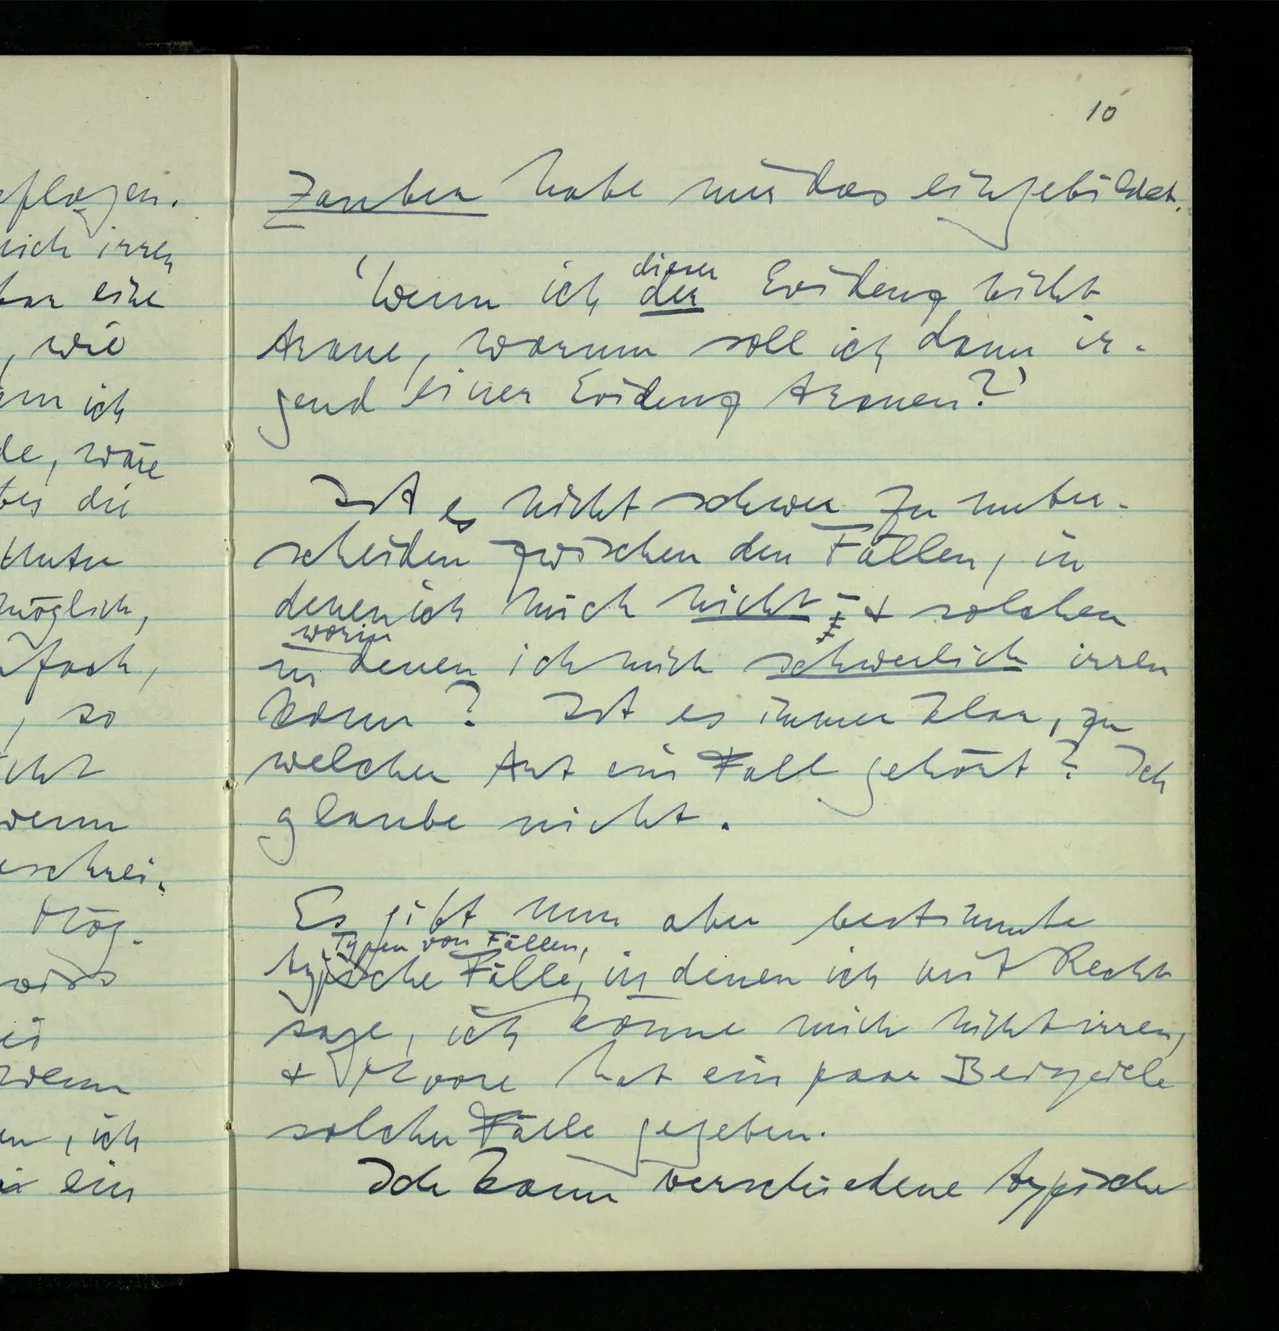 eflogen.
mich irren
bar eine
, wie
ich
de, wäre
die
möglich,
nfach,
, so
wenn
eschrei-
Mög-
wenn
en, ich
ein
10
Zauber habe mir das eingebildet.
dieser
'Wenn ich der Evidenz nicht
traue, warum soll ich dann ir-
gend einer Evidenz trauen?'
Ist es nicht schwer zu unter-
scheiden zwischen den Fällen, in
denen ich mich nicht & solchen
worin
in denen ich mich schwerlich irren
kann? Ist es immer klar, zu
welcher Art ein Fall gehört? Ich
glaube nicht.
Es gibt nun aber bestimmte
Typen von Fällen,
typische Fälle, in denen ich mit Recht
sage, ich könne mich nicht irren,
& Moore hat ein paar Beispiele
solcher Fälle gegeben.
Ich kann verschiedene typische